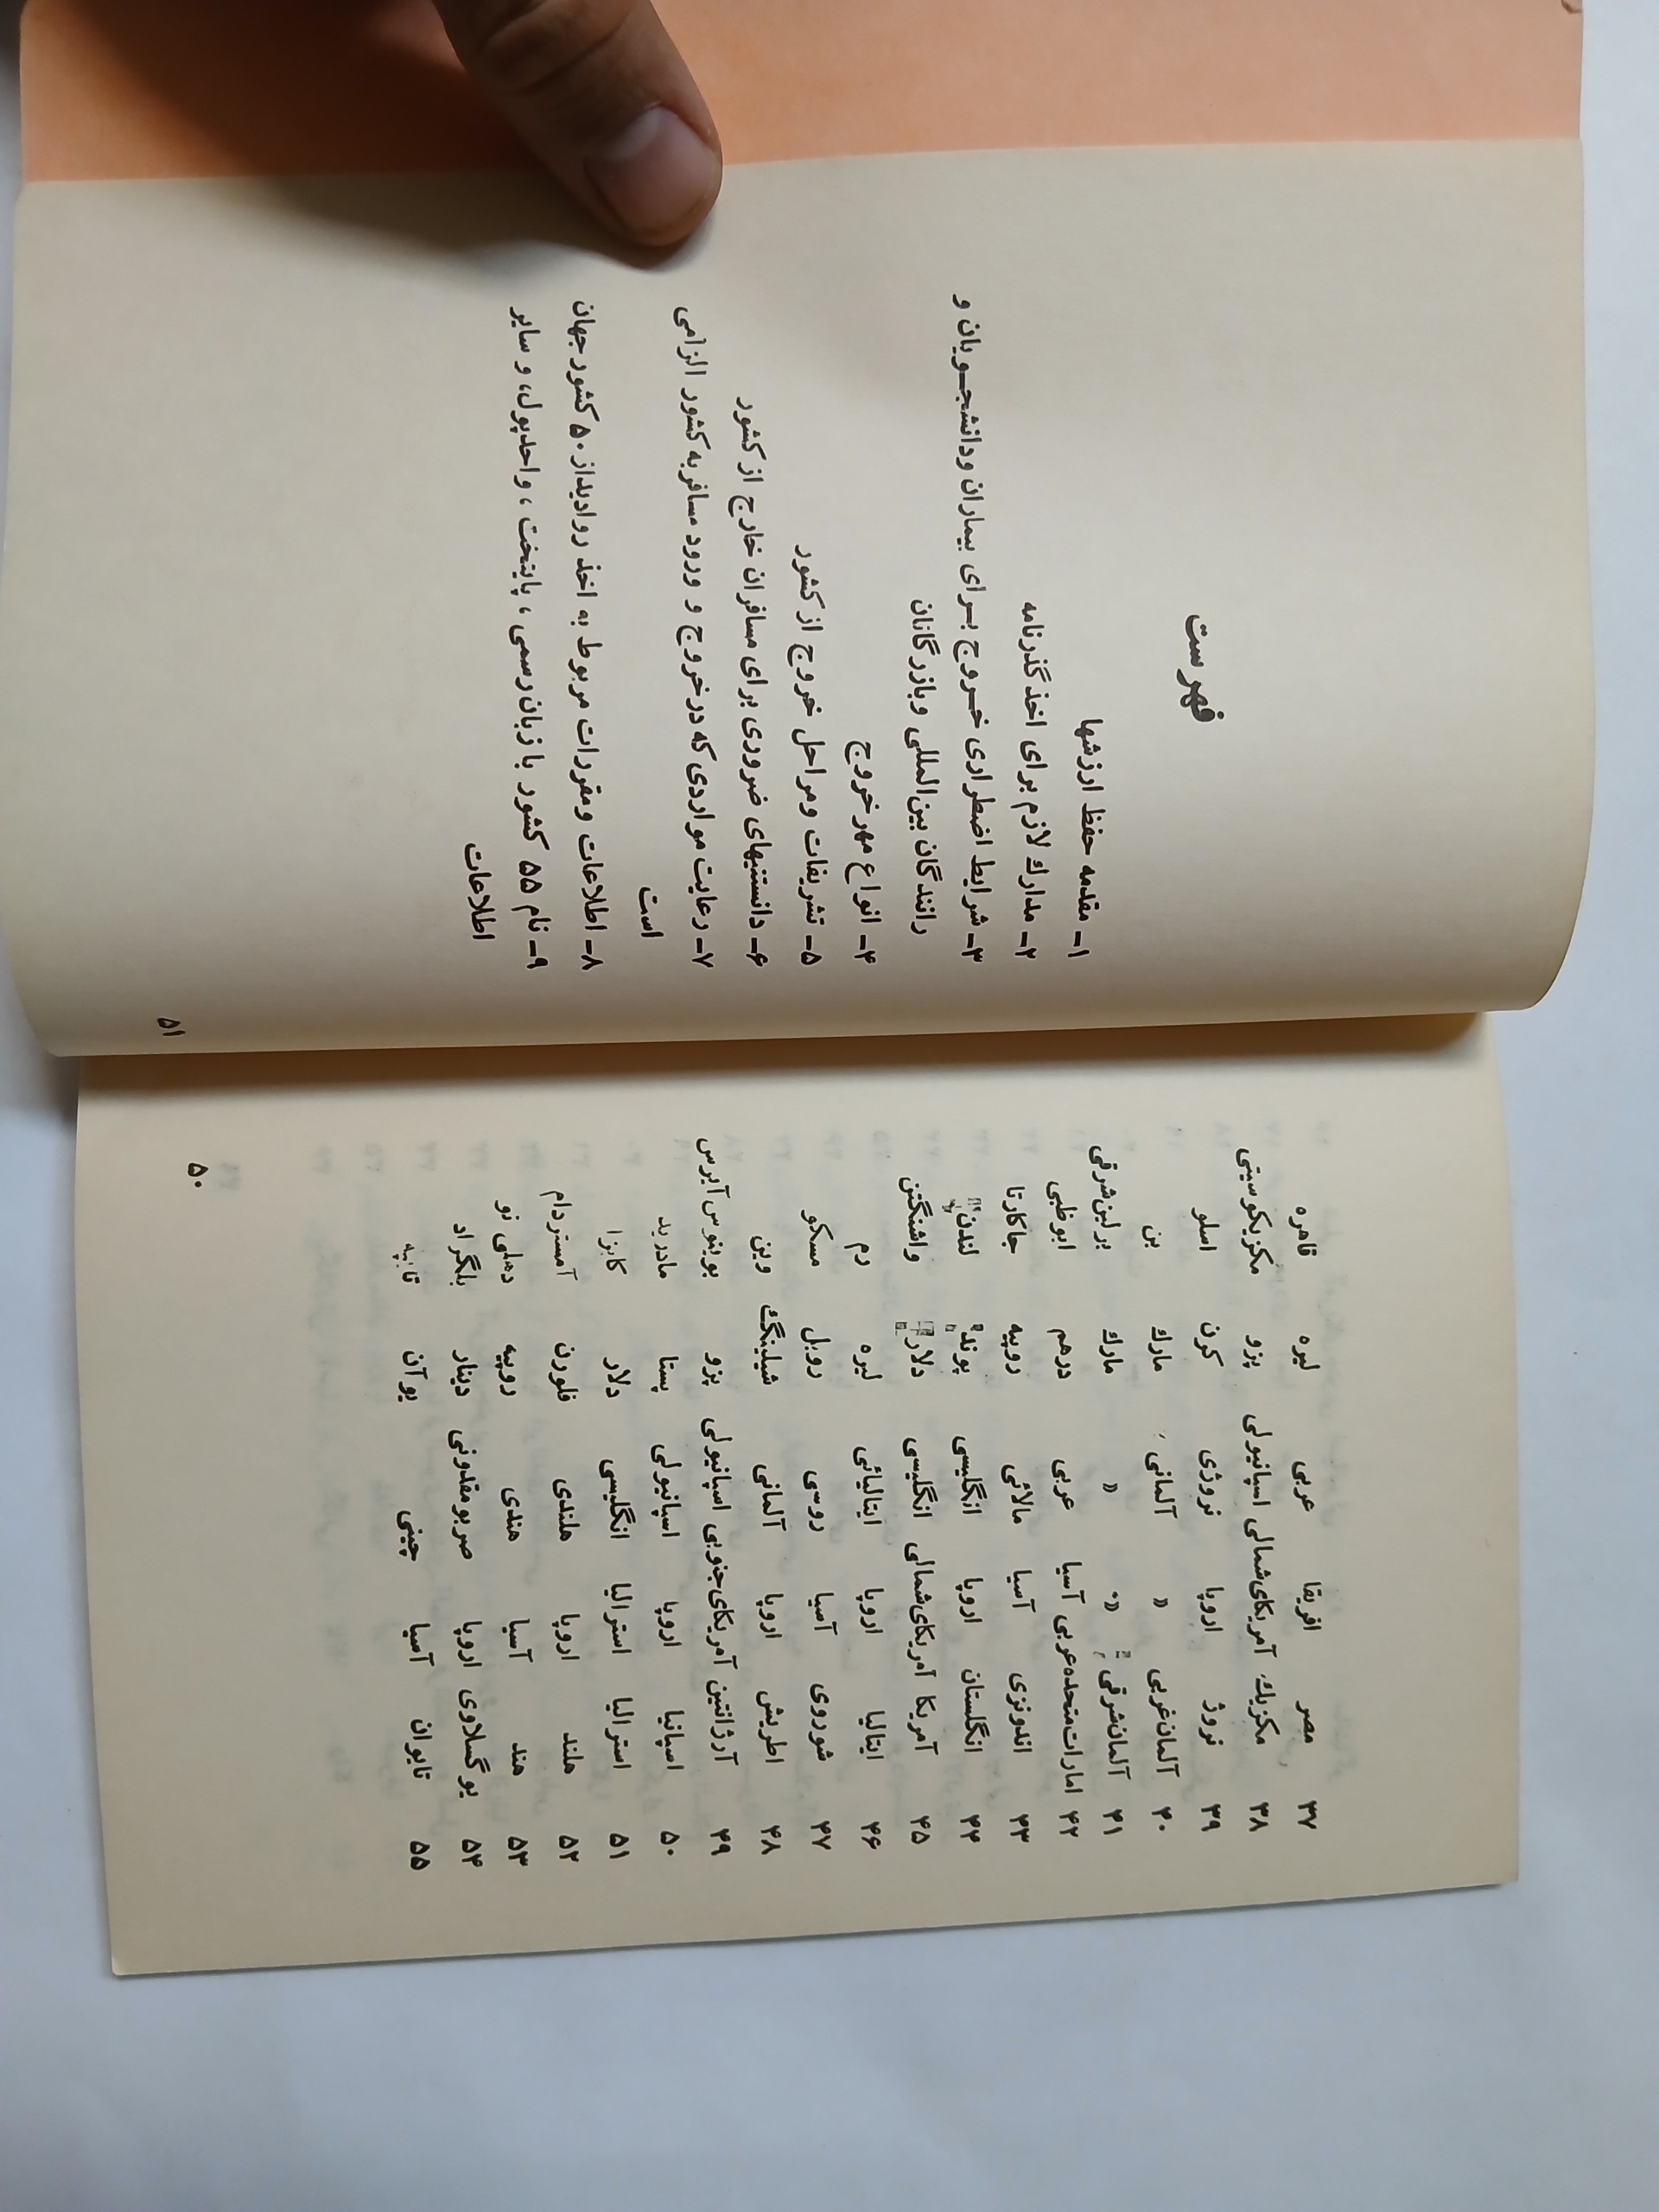 ۳۷ مصر افریقا عربی لیره قاهره
۳۸ مکزیك آمریکای‌شمالی اسپانیولی پزو مکزیکوسیتی
۳۹ نروژ اروپا نروژی کرن اسلو
۴۰ آلمان‌غربی » آلمانی مارك بن
۴۱ آلمان‌شرقی » » مارك برلین‌شرقی
۴۲ امارات‌متحده‌عربی آسیا عربی درهم ابوظبی
۴۳ اندونزی آسیا مالائی روپیه جاکارتا
۴۴ انگلستان اروپا انگلیسی پوند لندن
۴۵ آمریکا آمریکای‌شمالی انگلیسی دلار واشنگتن
۴۶ ایتالیا اروپا ایتالیائی لیره رم
۴۷ شوروی آسیا روسی روبل مسکو
۴۸ اطریش اروپا آلمانی شیلینگ وین
۴۹ آرژانتین آمریکای‌جنوبی اسپانیولی پزو بوینوس‌آیرس
۵۰ اسپانیا اروپا اسپانیولی پستا مادرید
۵۱ استرالیا استرالیا انگلیسی دلار کابزا
۵۲ هلند اروپا هلندی فلورن آمستردام
۵۳ هند آسیا هندی روپیه دهلی نو
۵۴ یوگسلاوی اروپا صربومقدونی دینار بلگراد
۵۵ تایوان آسیا چینی یوآن تایپه
۵۰
فهرست
۱ـ مقدمه حفظ ارزشها
۲ـ مدارك لازم برای اخذ گذرنامه
۳ـ شرایط اضطراری خـروج بـرای بیماران ودانشجـویان و
رانندگان بین‌المللی وبازرگانان
۴ـ انواع مهر خروج
۵ـ تشریفات ومراحل خروج از کشور
۶ـ دانستنیهای ضروری برای مسافران خارج از کشور
۷ـ رعایت مواردی که درخروج و ورود مسافربه کشور الزامی
است
۸ـ اطلاعات ومقررات مربوط به اخذ روادیداز ۵۰ کشورجهان
۹ـ نام ۵۵ کشور با زبان‌رسمی ، پایتخت ، واحدپول، و سایر
اطلاعات
۵۱